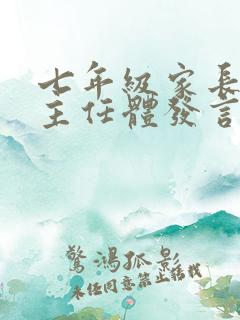 七年級家長
主任體發言
驚鴻孤影
未經同意禁止轉載